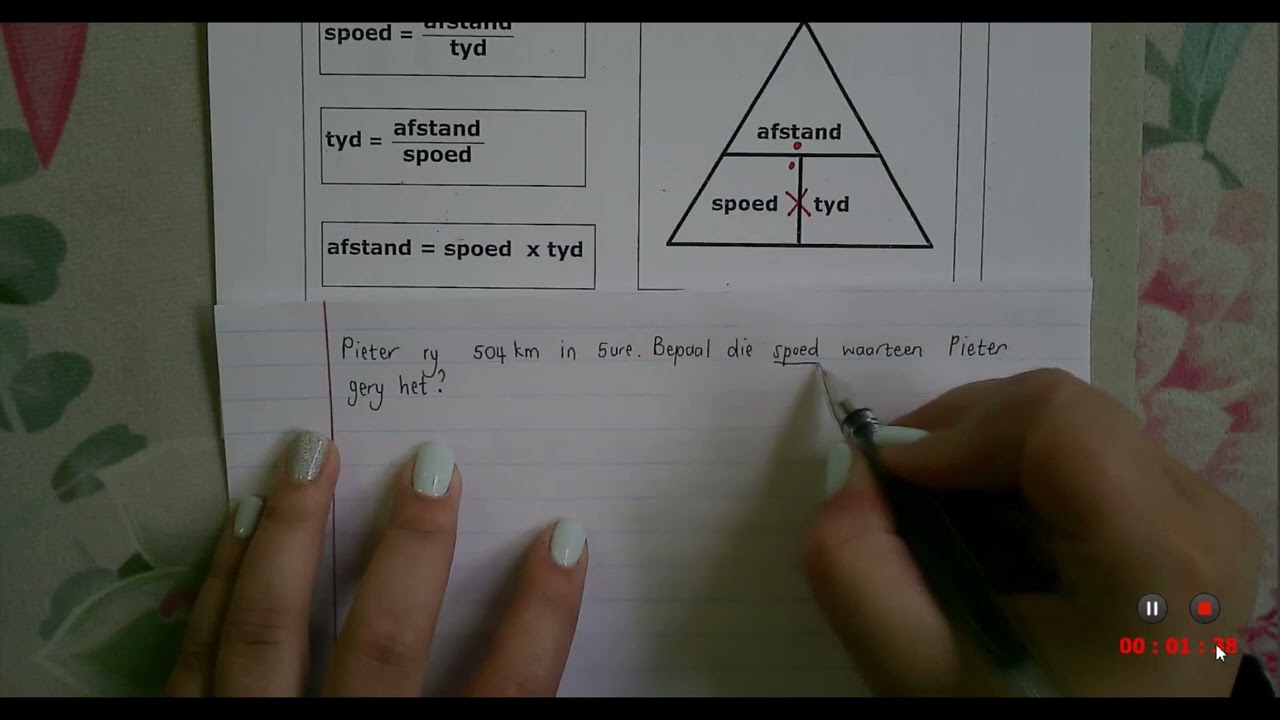 spoed = afstand
tyd
tyd = afstand
spoed
afstand = spoed x tyd
afstand
spoed X tyd
Pieter ry 504 km in 5ure. Bepaal die spoed waarteen Pieter
gery het?
00:01:38